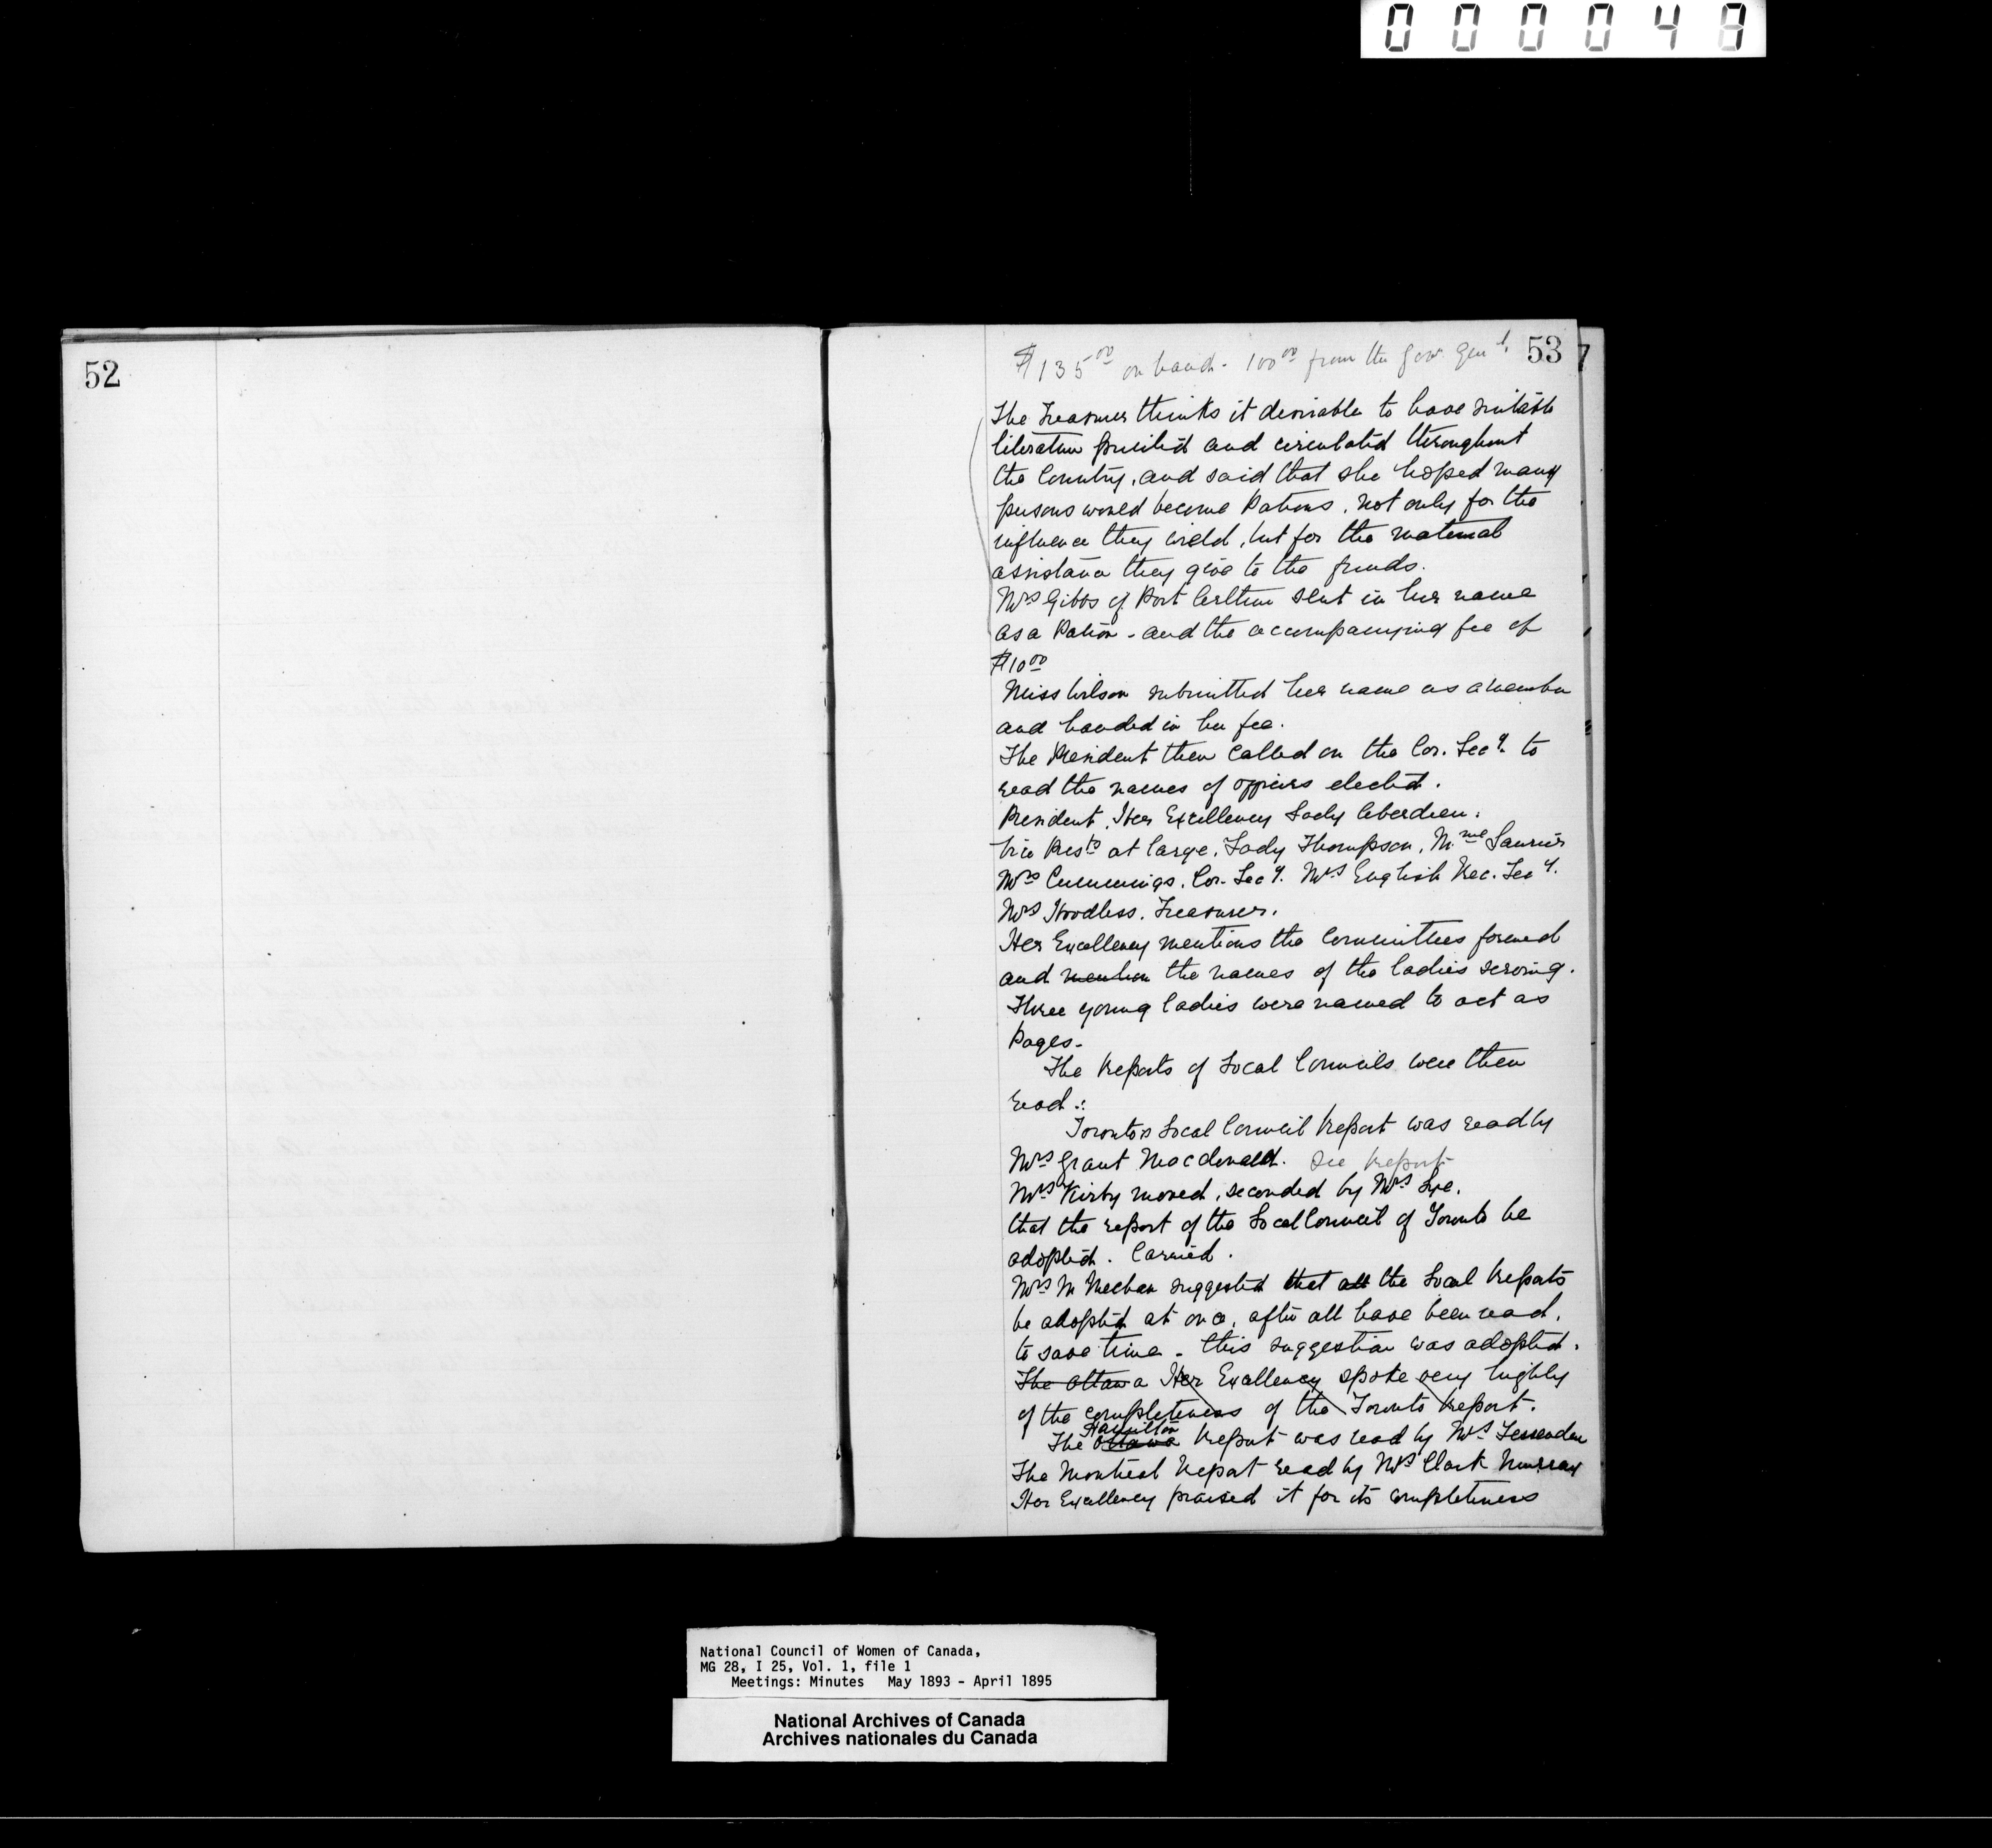 000049
52
53
7
$135.00 on hand - 100.00 from the Gov. Gen'l.
The Treasurer thinks it desirable to have suitable
literature printed and circulated throughout
the Country, and said that she hoped many
persons would become Patrons, not only for the
influence they wield, but for the material
assistance they give to the funds.
Mrs Gibbs of Port Carlton sent in her name
as a Patron - and the accompanying fee of
$10.00
Miss Wilson submitted her name as a member
and handed in her fee.
The President then called on the Cor. Secy. to
read the names of officers elected.
President, Her Excellency Lady Aberdeen.
Vice Prests at large, Lady Thompson, Mme Laurier
Mrs Cummings, Cor. Secy. Mrs English Rec. Secy.
Mrs Hoodless, Treasurer.
Her Excellency mentions the Committees formed
and mention the names of the ladies serving.
Three young ladies were named to act as
Pages -
The Reports of Local Councils were then
read :
Toronto's Local Council Report was read by
Mrs Grant Macdonald. See Report
Mrs Kirby moved, seconded by Mrs
that the report of the Local Council of Toronto be
adopted. Carried.
Mrs suggested that all the Local Reports
be adopted at once, after all have been read,
to save time - this suggestion was adopted.
The Ottawa Her Excellency spoke very highly
of the completeness of the Toronto Report.
Hamilton
The Ottawa Report was read by Mrs Fessenden
The Montreal Report read by Mrs Clark Murray
Her Excellency praised it for its completeness
National Council of Women of Canada,
MG 28, I 25, Vol. 1, file 1
Meetings: Minutes May 1893 - April 1895
National Archives of Canada
Archives nationales du Canada